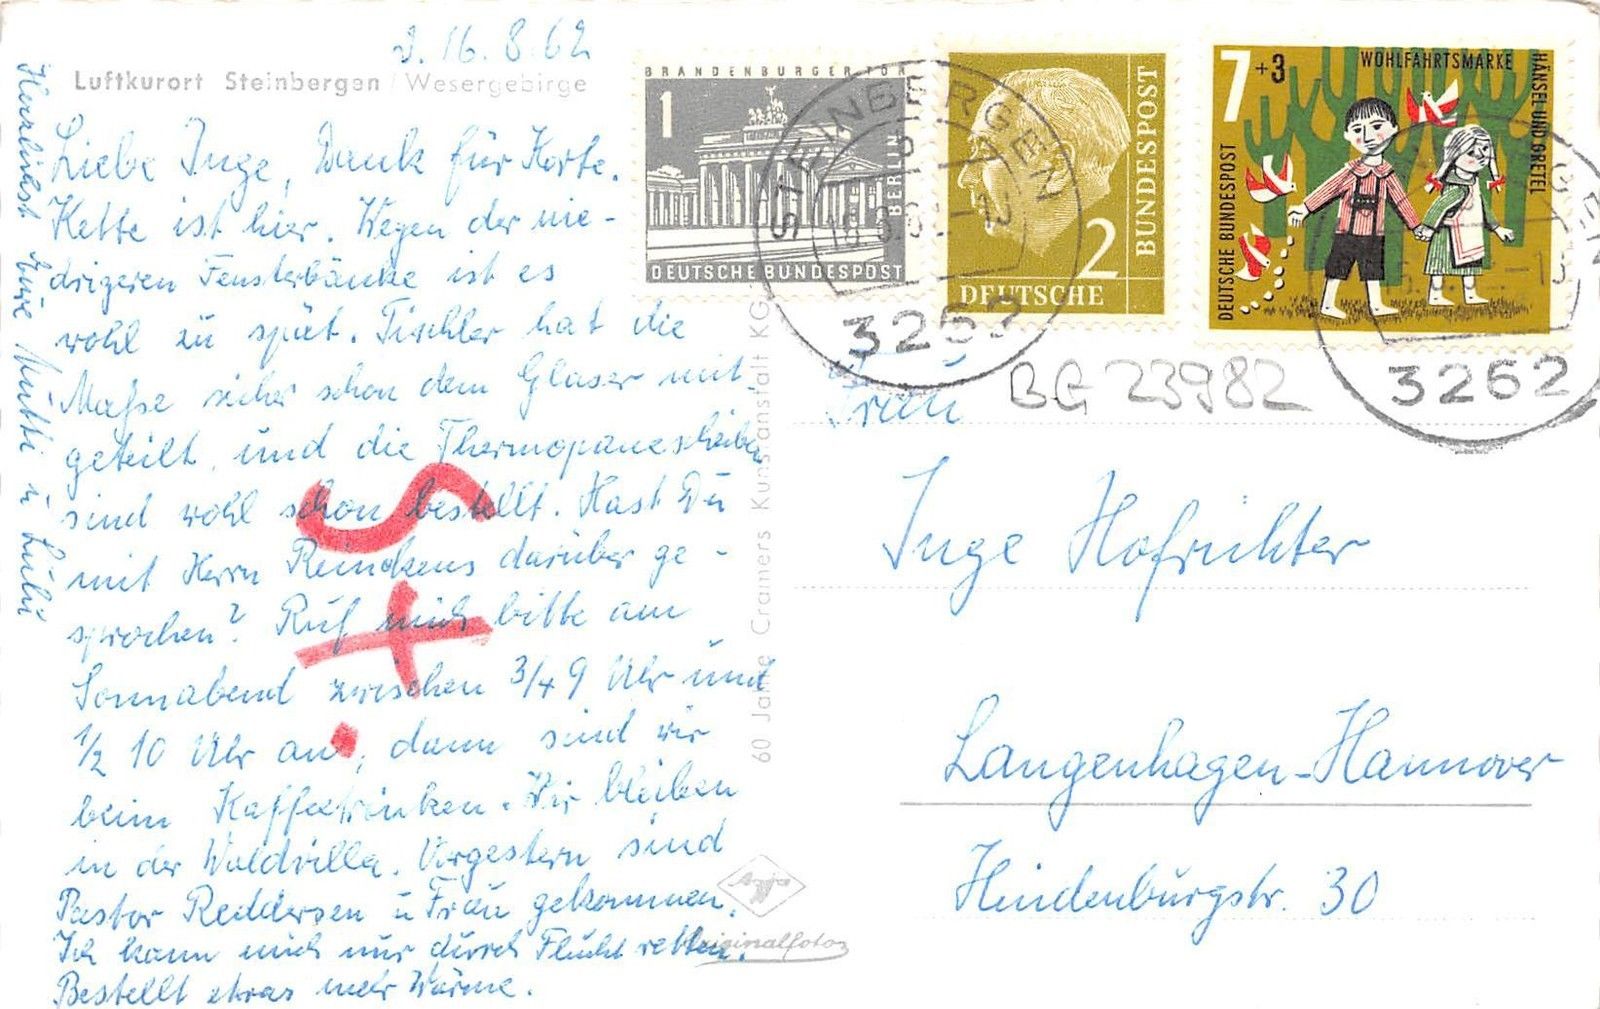 16.8.62
Luftkurort Steinbergen / Wesergebirge
Liebe Inge, Dank für Karte.
Kette ist hier. Wegen der nie-
drigeren Fensterbänke ist es
wohl zu spät. Tischler hat die
Maße sicher schon dem Glaser mit
geteilt, und die Thermopanescheiben
sind wohl schon bestellt. Hast Du
mit Herrn Reinckens darüber ge-
sprochen? Ruf mich bitte am
Sonnabend zwischen 3/4 9 Uhr und
1/2 10 Uhr an, dann sind wir
beim Kaffeetrinken. Wir bleiben
in der Waldvilla. Vorgestern sind
Pastor Reddersen u Frau gekommen.
Ich kann mich nur durch Flucht retten.
Bestellt etwas mehr Wärme.
Herzlichst Eure Mutti u Lulu
60 Jahre Cramers Kunstanstalt KG.
Agfa
Originalfoto
BRANDENBURGER TOR
1
BERLIN
DEUTSCHE BUNDESPOST
BUNDESPOST
2
DEUTSCHE
7+3
WOHLFAHRTSMARKE
HÄNSEL UND GRETEL
DEUTSCHE BUNDESPOST
STEINBERGEN
3262
3262
BG 23982
Frau
Inge Hofrichter
Langenhagen-Hannover
Hindenburgstr. 30